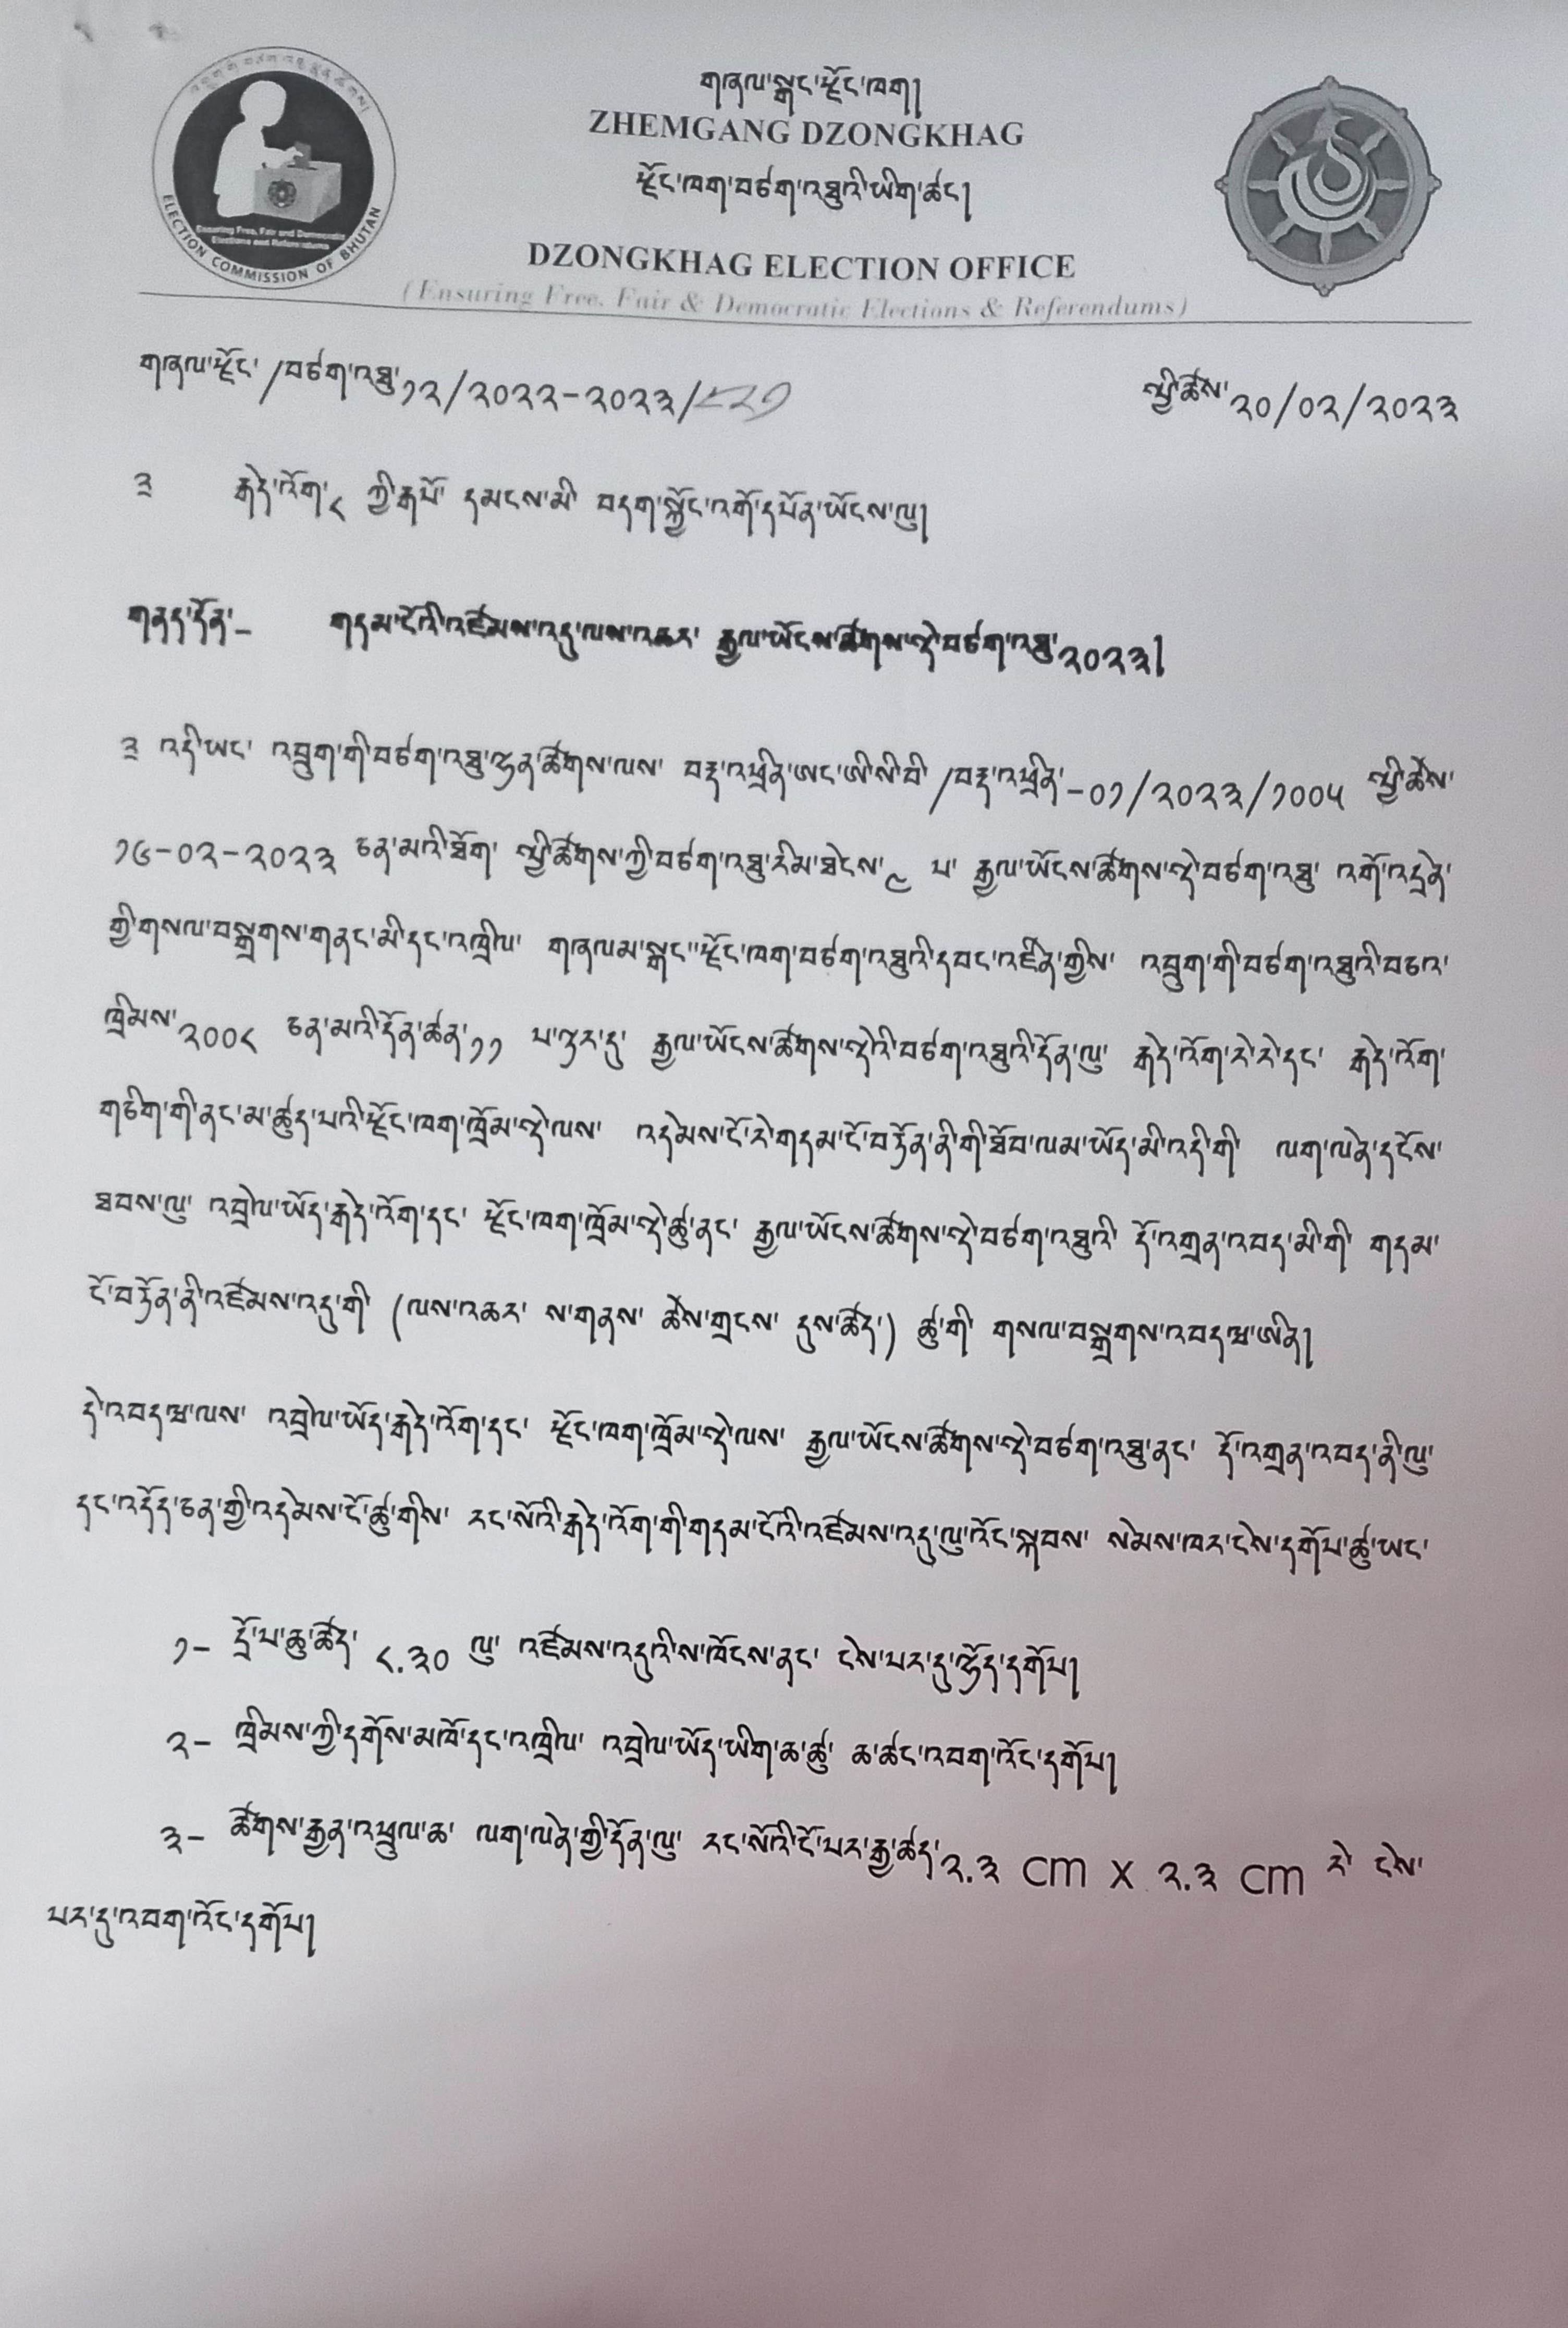 གཞལ་སྒང་རྫོང་ཁག།
ZHEMGANG DZONGKHAG
རྫོང་ཁག་བཙག་འཐུའི་ཡིག་ཚང།
DZONGKHAG ELECTION OFFICE
(Ensuring Free, Fair & Democratic Elections & Referendums)
Ensuring Free, Fair and Democratic
Elections and Referendums
ELECTION COMMISSION OF BHUTAN
གཞལ་རྫོང་/བཙག་འཐུ་༡༢/༢༠༢༢-༢༠༢༣/༨༢༡ སྤྱི་ཚེས་༢༠/༠༢/༢༠༢༣
༉ རྒེད་འོག་༨ ཀྱི་རྒཔོ་ དམངས་མི་ བདག་སྐྱོང་འགོ་དཔོན་ཡོངས་ལུ།
གནད་དོན་- གདམ་ངོའི་འཛོམས་འདུ་ལས་འཆར་ རྒྱལ་ཡོངས་ཚོགས་སྡེ་བཙག་འཐུ་༢༠༢༣།
༉ འདི་ཡང་ འབྲུག་གི་བཙག་འཐུ་ལྷན་ཚོགས་ལས་ བརྡ་འཕྲིན་ཨང་ཨི་སི་བི་/བརྡ་འཕྲིན་-༠༡/༢༠༢༣/༡༠༠༥ སྤྱི་ཚེས་
༡༦-༠༢-༢༠༢༣ ཅན་མའི་ཐོག་ སྤྱི་ཚོགས་ཀྱི་བཙག་འཐུ་རིམ་ཐེངས་༩ པ་ རྒྱལ་ཡོངས་ཚོགས་སྡེ་བཙག་འཐུ་ འགོ་འདྲེན་
གྱི་གསལ་བསྒྲགས་གནང་མི་དང་འཁྲིལ་ གཞལམ་སྒང་་རྫོང་ཁག་བཙག་འཐུའི་དབང་འཛིན་གྱིས་ འབྲུག་གི་བཙག་འཐུའི་བཅའ་
ཁྲིམས་༢༠༠༨ ཅན་མའི་དོན་ཚན་༡༡ པ་ལྟར་དུ་ རྒྱལ་ཡོངས་ཚོགས་སྡེའི་བཙག་འཐུའི་དོན་ལུ་ རྒེད་འོག་རེ་རེ་དང་ རྒེད་འོག་
གཅིག་གི་ནང་མ་ཚུད་པའི་རྫོང་ཁག་ཁྲོམ་སྡེ་ལས་ འདེམས་ངོ་རེ་གདམ་ངོ་བཏོན་ནི་གི་ཐོབ་ལམ་ཡོད་མི་འདི་གི་ ལག་ལེན་དངོས་
ཐབས་ལུ་ འབྲེལ་ཡོད་རྒེད་འོག་དང་ རྫོང་ཁག་ཁྲོམ་སྡེ་ཚུ་ནང་ རྒྱལ་ཡོངས་ཚོགས་སྡེ་བཙག་འཐུའི་ དོ་འགྲན་འབད་མི་གི་ གདམ་
ངོ་བཏོན་ནི་འཛོམས་འདུ་གི་ (ལས་འཆར་ ས་གནས་ ཚེས་གྲངས་ དུས་ཚོད་) ཚུ་གི་ གསལ་བསྒྲགས་འབདཝ་ཨིན།
དེ་འབདཝ་ལས་ འབྲེལ་ཡོད་རྒེད་འོག་དང་ རྫོང་ཁག་ཁྲོམ་སྡེ་ལས་ རྒྱལ་ཡོངས་ཚོགས་སྡེ་བཙག་འཐུ་ནང་ དོ་འགྲན་འབད་ནི་ལུ་
དང་འདོད་ཅན་གྱི་འདེམས་ངོ་ཚུ་གིས་ རང་སོའི་རྒེད་འོག་གི་གདམ་ངོའི་འཛོམས་འདུ་ལུ་འོང་སྐབས་ སེམས་ཁར་ངེས་དགོཔ་ཚུ་ཡང་
༡- དྲོ་པ་ཆུ་ཚོད་ ༨.༣༠ ལུ་ འཛོམས་འདུའི་ས་ཁོངས་ནང་ ངེས་པར་དུ་ལྷོད་དགོཔ།
༢- ཁྲིམས་ཀྱི་དགོས་མཁོ་དང་འཁྲིལ་ འབྲེལ་ཡོད་ཡིག་ཆ་ཚུ་ ཆ་ཚང་འབག་འོང་དགོཔ།
༣- ཚོགས་རྒྱན་འཕྲུལ་ཆ་ ལག་ལེན་གྱི་དོན་ལུ་ རང་སོའི་ངོ་པར་རྒྱ་ཚད་༢.༣ cm x ༢.༣ cm རེ་ ངེས་
པར་དུ་འབག་འོང་དགོཔ།